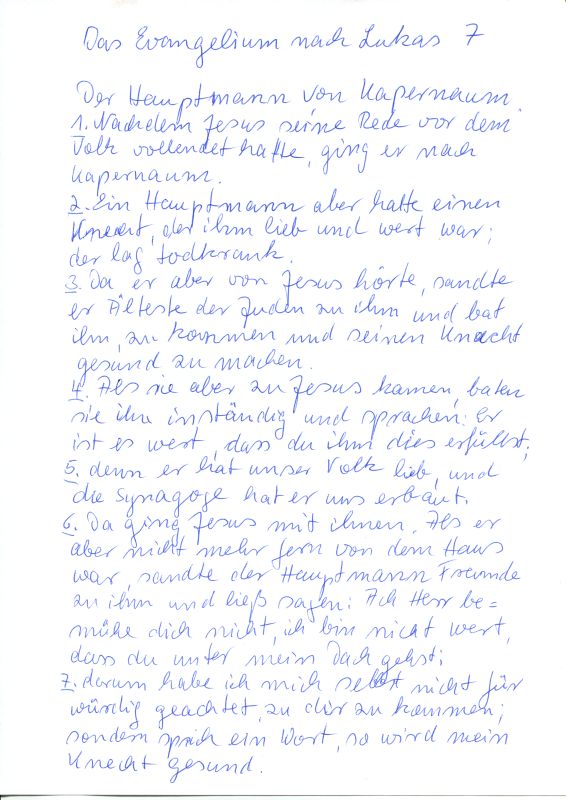 Das Evangelium nach Lukas 7
Der Hauptmann von Kapernaum.
1. Nachdem Jesus seine Rede vor dem
Volk vollendet hatte, ging er nach
Kapernaum.
2. Ein Hauptmann aber hatte einen
Knecht, der ihm lieb und wert war;
der lag todkrank.
3. Da er aber von Jesus hörte, sandte
er Älteste der Juden zu ihm und bat
ihn, zu kommen und seinen Knecht
gesund zu machen.
4. Als sie aber zu Jesus kamen, baten
sie ihn inständig und sprachen: Er
ist es wert, dass du ihm dies erfüllst;
5. denn er hat unser Volk lieb, und
die Synagoge hat er uns erbaut.
6. Da ging Jesus mit ihnen. Als er
aber nicht mehr fern von dem Haus
war, sandte der Hauptmann Freunde
zu ihm und ließ sagen: Ach Herr be=
mühe dich nicht, ich bin nicht wert,
dass du unter mein Dach gehst;
7. darum habe ich mich selbst nicht für
würdig geachtet, zu dir zu kommen;
sondern sprich ein Wort, so wird mein
Knecht gesund.